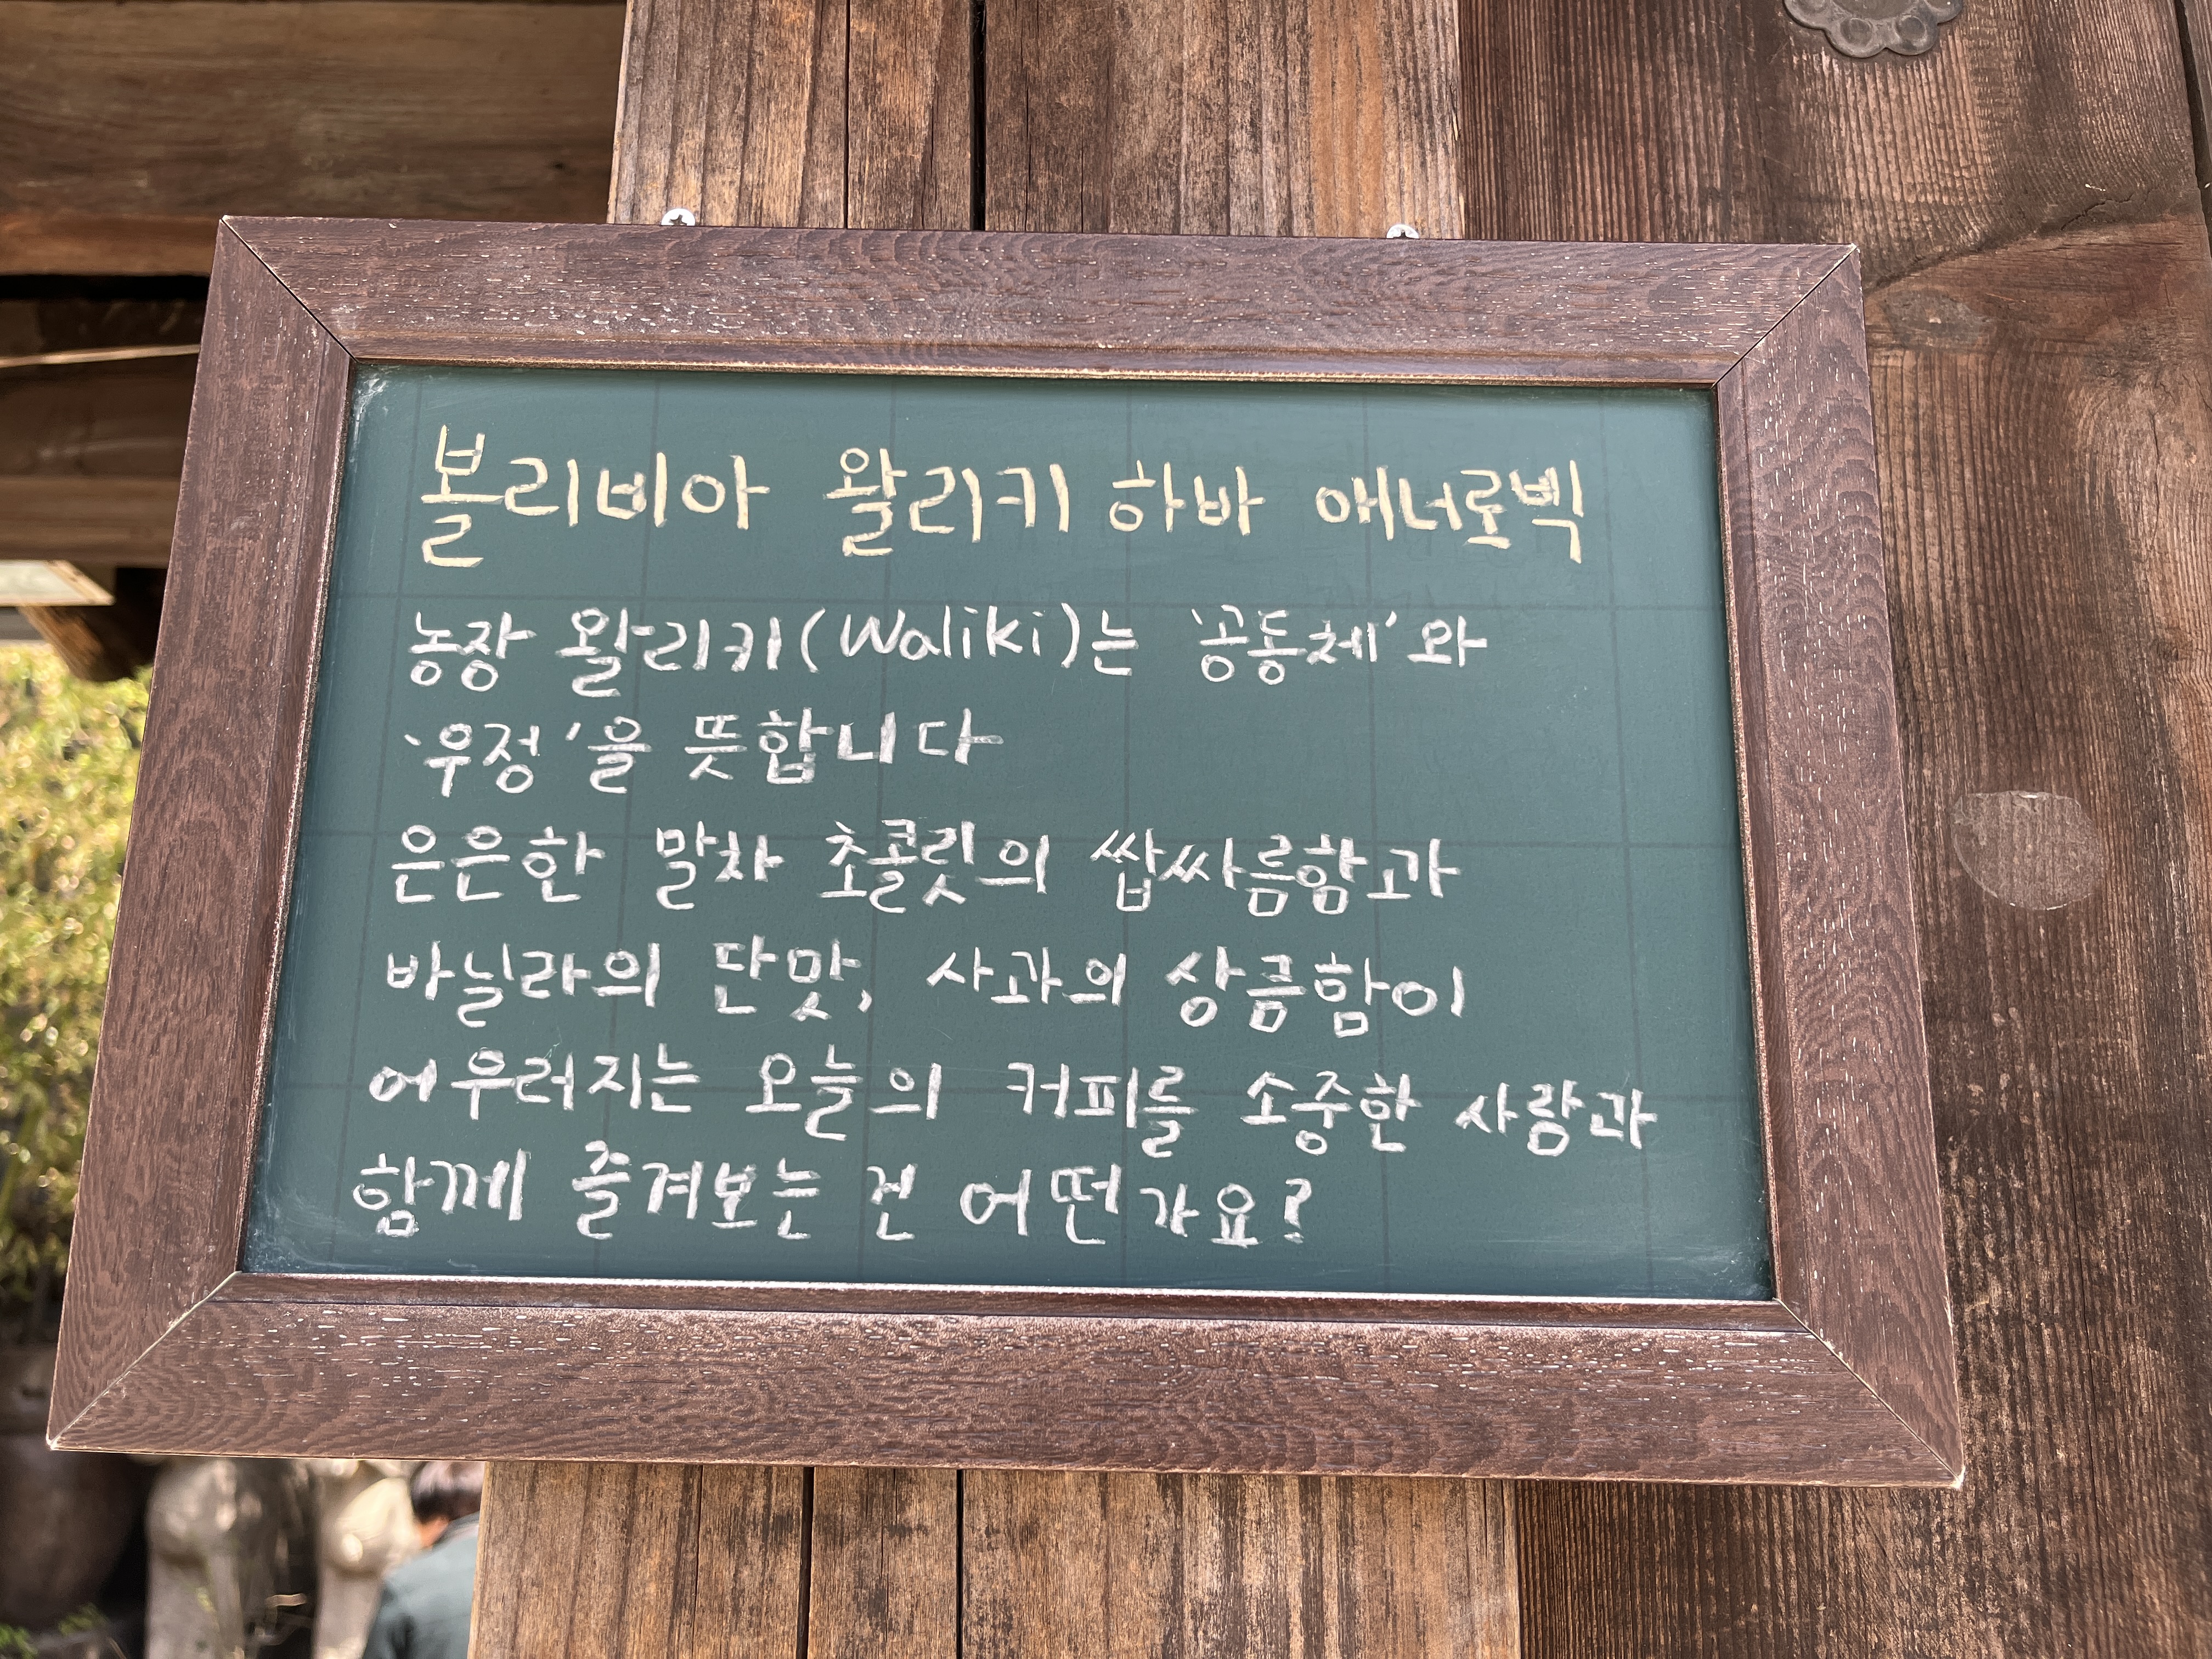 볼리비아 왈리키 하바 애너로빅
농장 왈리키(Waliki)는 '공동체'와
'우정'을 뜻합니다
은은한 말차 초콜릿의 쌉싸름함과
바닐라의 단맛, 사과의 상큼함이
어우러지는 오늘의 커피를 소중한 사람과
함께 즐겨보는 건 어떤가요?